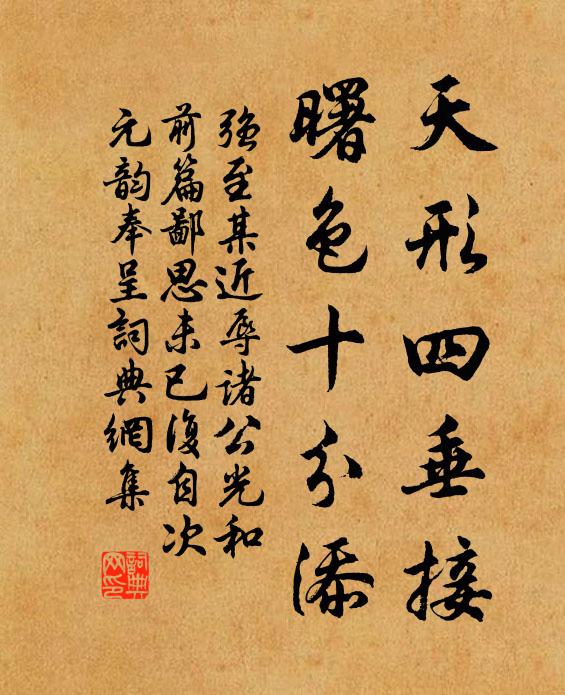 天形四垂接
曙色十分添
強至某近辱諸公光和
前篇鄙思未已復自次
元韵奉呈詞典網集
詞典
网印